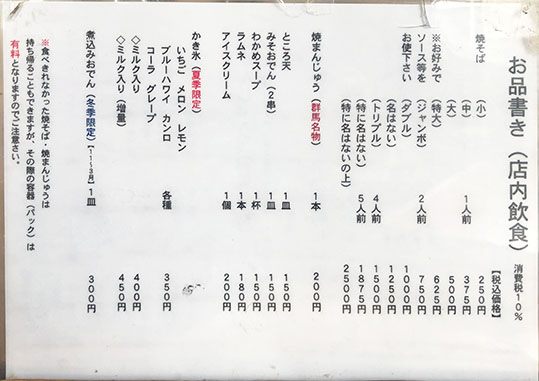 お品書き(店内飲食) 消費税10%
【税込価格】
焼そば (小) 250円
(中) 1人前 375円
(大) 500円
※お好みで (特大) 625円
ソース等を (ジャンボ) 2人前 750円
お使下さい (ダブル) 1000円
(名はない) 1250円
(トリプル) 4人前 1500円
(特に名はない) 5人前 1875円
(特に名はないの上) 2500円
焼まんじゅう(群馬名物) 1本 200円
ところ天 1皿 150円
みそおでん(2串) 1皿 150円
わかめスープ 1杯 150円
ラムネ 1本 180円
アイスクリーム 1個 200円
かき氷(夏季限定)
いちご メロン レモン
ブルーハワイ カンロ 各種 350円
コーラ グレープ
◇ミルク入り 400円
◇ミルク入り(増量) 450円
煮込みおでん(冬季限定)【11~3月】1皿 300円
※食べきれなかった焼そば・焼まんじゅうは
持ち帰ることもできますが、その際の容器(パック)は
有料となりますのでご注意さい。